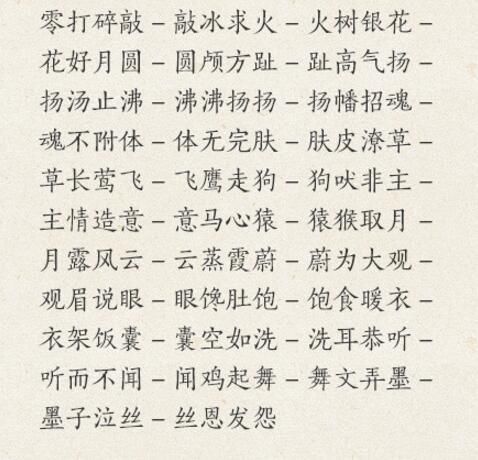 零打碎敲–敲冰求火–火树银花–
花好月圆–圆颅方趾–趾高气扬–
扬汤止沸–沸沸扬扬–扬幡招魂–
魂不附体–体无完肤–肤皮潦草–
草长莺飞–飞鹰走狗–狗吠非主–
主情造意–意马心猿–猿猴取月–
月露风云–云蒸霞蔚–蔚为大观–
观眉说眼–眼馋肚饱–饱食暖衣–
衣架饭囊–囊空如洗–洗耳恭听–
听而不闻–闻鸡起舞–舞文弄墨–
墨子泣丝–丝恩发怨